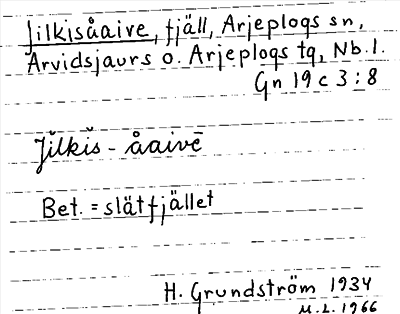 Jilkisåaive, fjäll, Arjeplogs sn,
Arvidsjaurs o. Arjeplogs tg, Nb.l.
Gn 19 c 3:8
Jĭlkĭs - åaivē
Bet. = slätfjället
H. Grundström 1934
M.L. 1966